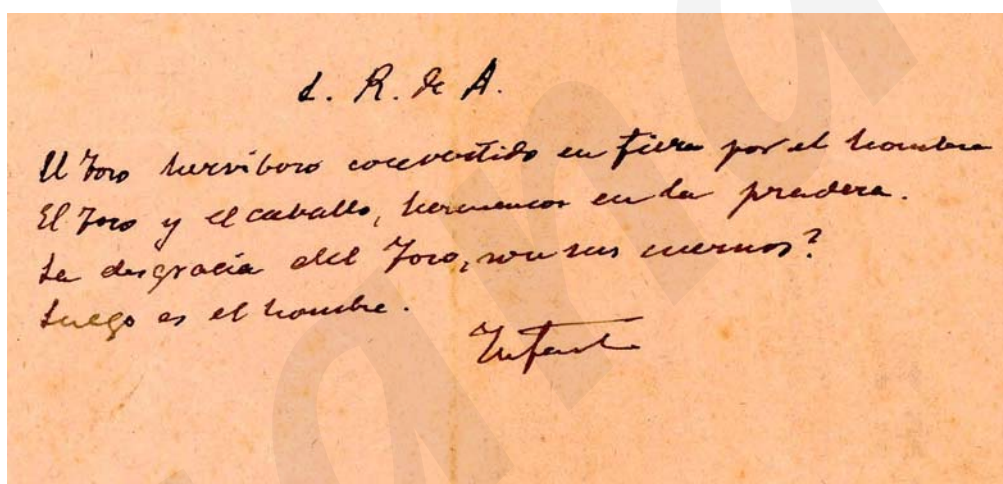 L. R. de A.
El Toro hervíboro convertido en fiera por el hombre
El Toro y el caballo, hermanos en la pradera.
La desgracia del Toro, son sus cuernos?
Luego es el hombre.
Infante